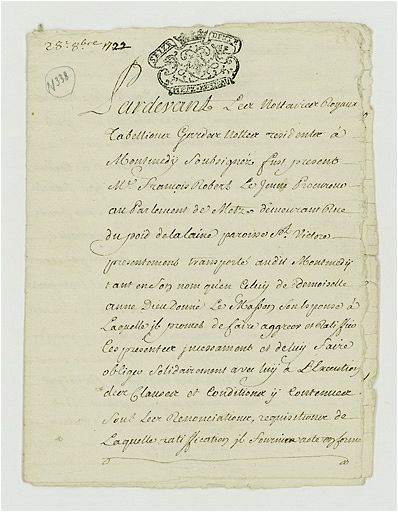 28.e 9bre 1722
N338
Pardevant Les Nottaires Royaux
Tabellions Gardes Nottes residents à
Montmedÿ Soubsignéz fust present
Me. François Robert Le Jeune Procureur
au Parlement de Metz demeurant Rue
du poid de la laine paroisse St. Victor
presentement transporté audit Montmedÿ
tant en son nom qu'en celuy de demoiselle
anne Dieu Donné Le Masson son Epouse à
Laquelle jl promet de faire aggreer et Ratiffier
Ces presentes jncessament et de luÿ faire
obliger Solidairement avec luÿ à L'Execution
des Clauses et Conditions ÿ Contenues
Sous Les Renonciations, requisitions de
Laquelle ratiffication jl fournira acte en forme